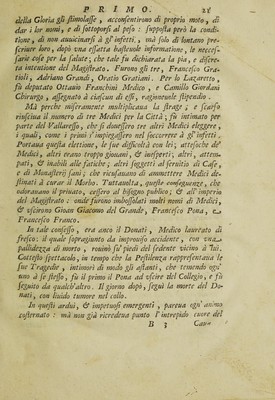 PRIMO. 21
della Gloria gli stimolasse, acconsentirono di proprio moto, di
dar i lor nomi, e di sottoporsi al peso: supposta però la condi-
tione, di non auuicinarsi à gl'infetti, mà solo di lontano pre-
scriuere loro, dopò vna essatta bastevole informatione, le necces-
sarie cose per la salute; che tale fu dichiarata la pia, e discre-
ta intentione del Magistrato. Furono gli tre, Francesco Gra-
tioli, Adriano Grandi, Oratio Gratiani. Per lo Lazaretto,
fù deputato Ottauio Franchini Medico, e Camillo Giordani
Chirurgo, assegnato à ciascun di essi, ragioneuole stipendio.
Mà perche miseramente multiplicaua la strage, e scarso
riusciua il numero di tre Medici per la Città; fù intimato per
parte del Vallaresso, che si douessero tre altri Medici eleggere,
i quali, come i primi s'impiegassero nel soccorrere à gl'infetti.
Portaua questa elettione, le sue difficoltà con lei; attesoche de'
Medici, altri erano troppo giouani, & inesperti; altri, attem-
pati, & inabili alle fatiche; altri soggetti al seruitio di Case,
e di Monasterij sani; che ricusauano di ammettere Medici de-
stinati à curar il Morbo. Tuttauolta, queste conseguenze, che
odorauano il priuato, cessero al bisogno publico; & all'imperio
del Magistrato: onde furono imbossolati molti nomi di Medici,
& vscirono Gioan Giacomo del Grande, Francesco Pona, e
Francesco Franco.
In tale consesso, era anco il Donati, Medico laureato di
fresco: il quale sopragiunto da improuiso accidente, con vna
pallidezza di morte, rouinò su' piedi del sedente vicino à lui.
Cottesto spettacolo, in tempo che la Pestilenza rappresentaua le
sue Tragedie, intimorì di modo gli astanti, che temendo ogn'
uno à se stesso, fù il primo il Pona ad vscire del Collegio, e fù
seguito da qualch'altro. Il giorno dopò, seguì la morte del Do-
nati, con liuido tumore nel collo.
In questi ardui, & impetuosi emergenti, pareua ogn'animo
costernato: mà non già ricredeua punto l'intrepido cuore del
B 3 Caua-